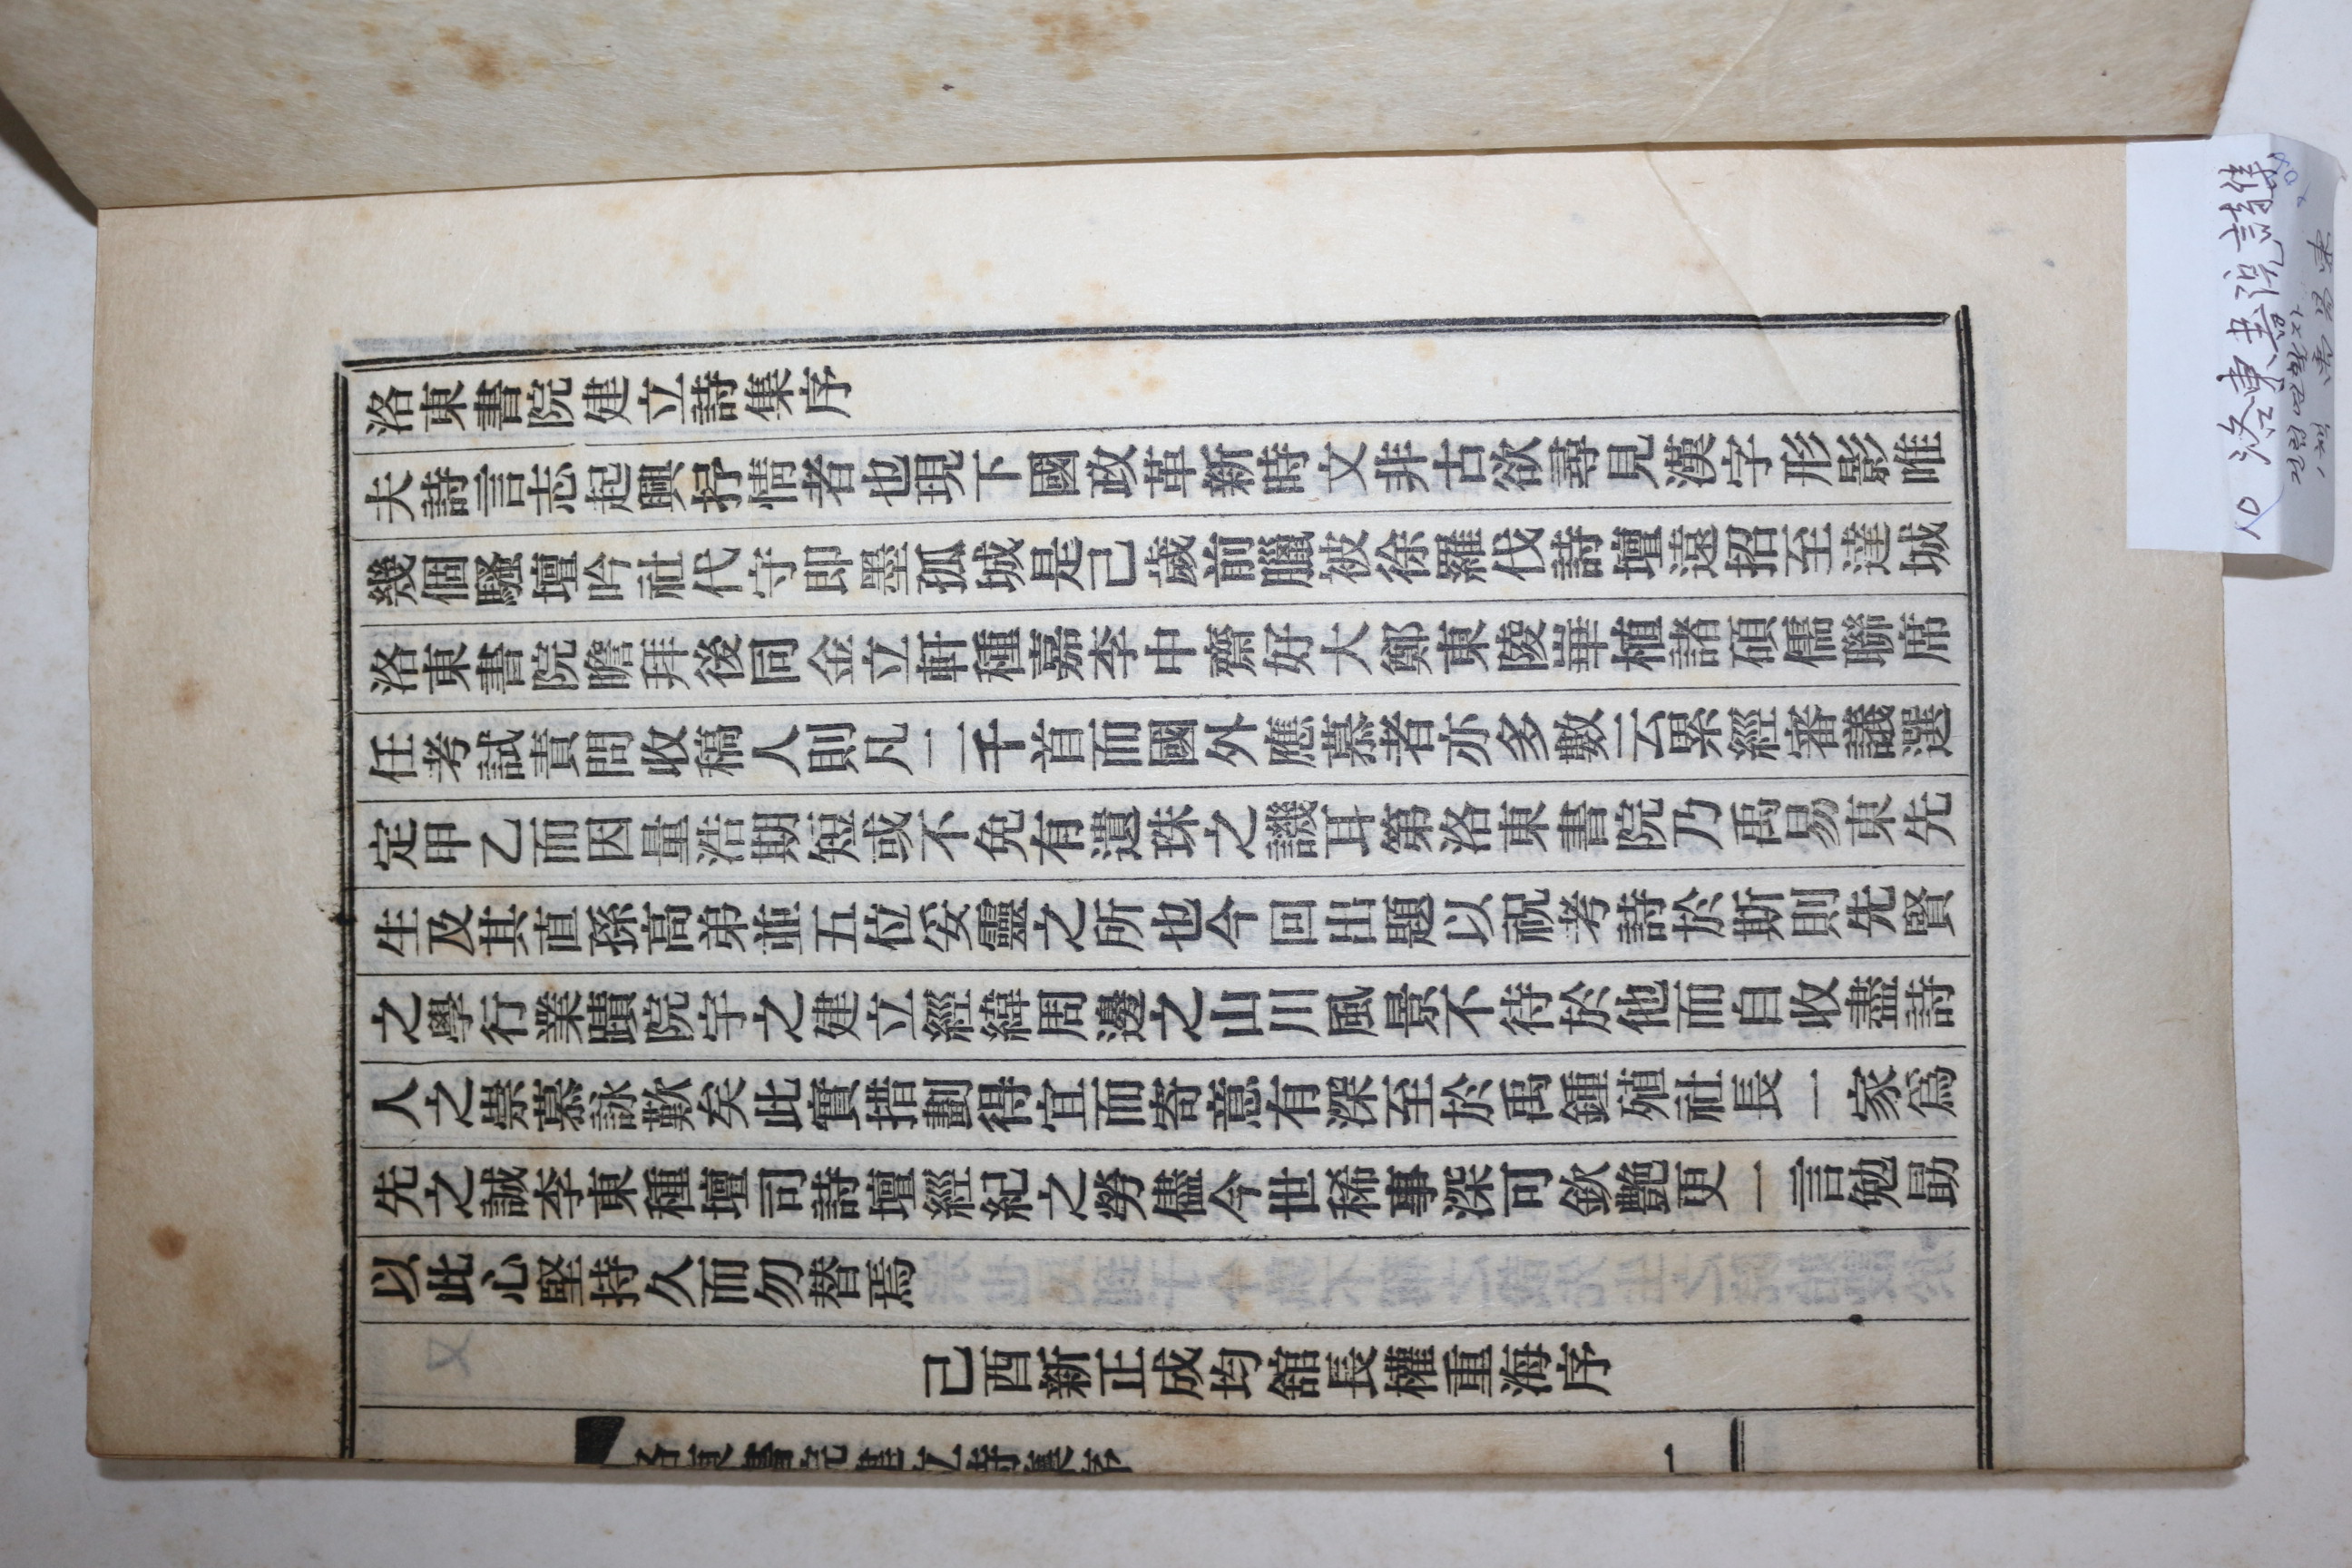 洛東書院建立詩集序
夫詩言志起興抒情者也現下國政革新時文非古欲尋見漢字形影唯
幾個騷壇吟社代守即墨孤城是己歲前臘被徐羅伐詩壇遠招至達城
洛東書院瞻拜後同金立軒種嘉李中齋好大鄭東陵崋植諸碩儒聯席
任考試責問收稿人則凡二千首而國外應慕者亦多數云累經審議選
定甲乙而因量浩期短或不免有遺珠之譏耳第洛東書院乃禹易東先
生及其直孫高弟並五位妥靈之所也今回出題以祝考詩於斯則先賢
之學行業蹟院宇之建立經緯周邊之山川風景不待於他而自收盡詩
人之崇慕詠歎矣此實措劃得宜而寄意有深至於禹鍾殖社長一家爲
先之誠李東種壇司詩壇經紀之勞儘今世稀事深可欽艷更一言勉勗
以此心堅持久而勿替焉
己酉新正成均舘長權重海序
洛東書院建立詩集序
一
10 洛東書院詩集
건립연활자
1책 禹易東